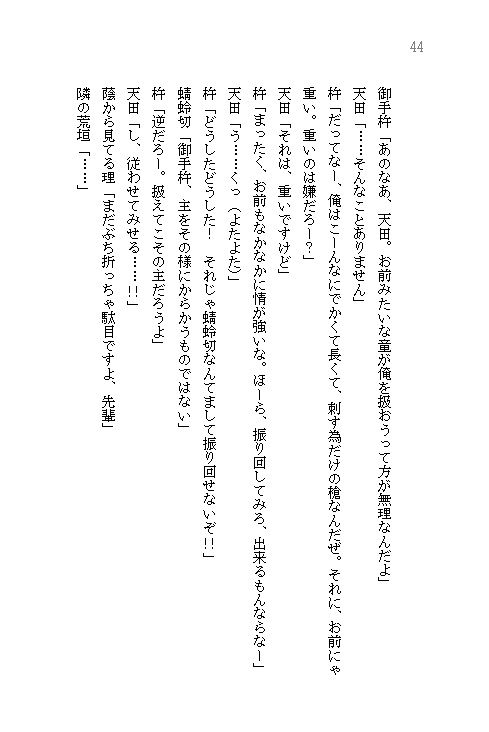 44
御手杵「あのなあ、天田。お前みたいな童が俺を扱おうって方が無理なんだよ」
天田「……そんなことありません」
杵「だってなー、俺はこーんなにでかくて長くて、刺す為だけの槍なんだぜ。それに、お前にゃ
重い。重いのは嫌だろー？」
天田「それは、重いですけど」
杵「まったく、お前もなかなかに情が強いな。ほーら、振り回してみろ、出来るもんならなー」
天田「う……くっ（よたよた）」
杵「どうしたどうした！　それじゃ蜻蛉切なんてまして振り回せないぞ!!」
蜻蛉切「御手杵、主をその様にからかうものではない」
杵「逆だろー。扱えてこその主だろうよ」
天田「し、従わせてみせる……!!」
蔭から見てる理「まだぶち折っちゃ駄目ですよ、先輩」
隣の荒垣「……」